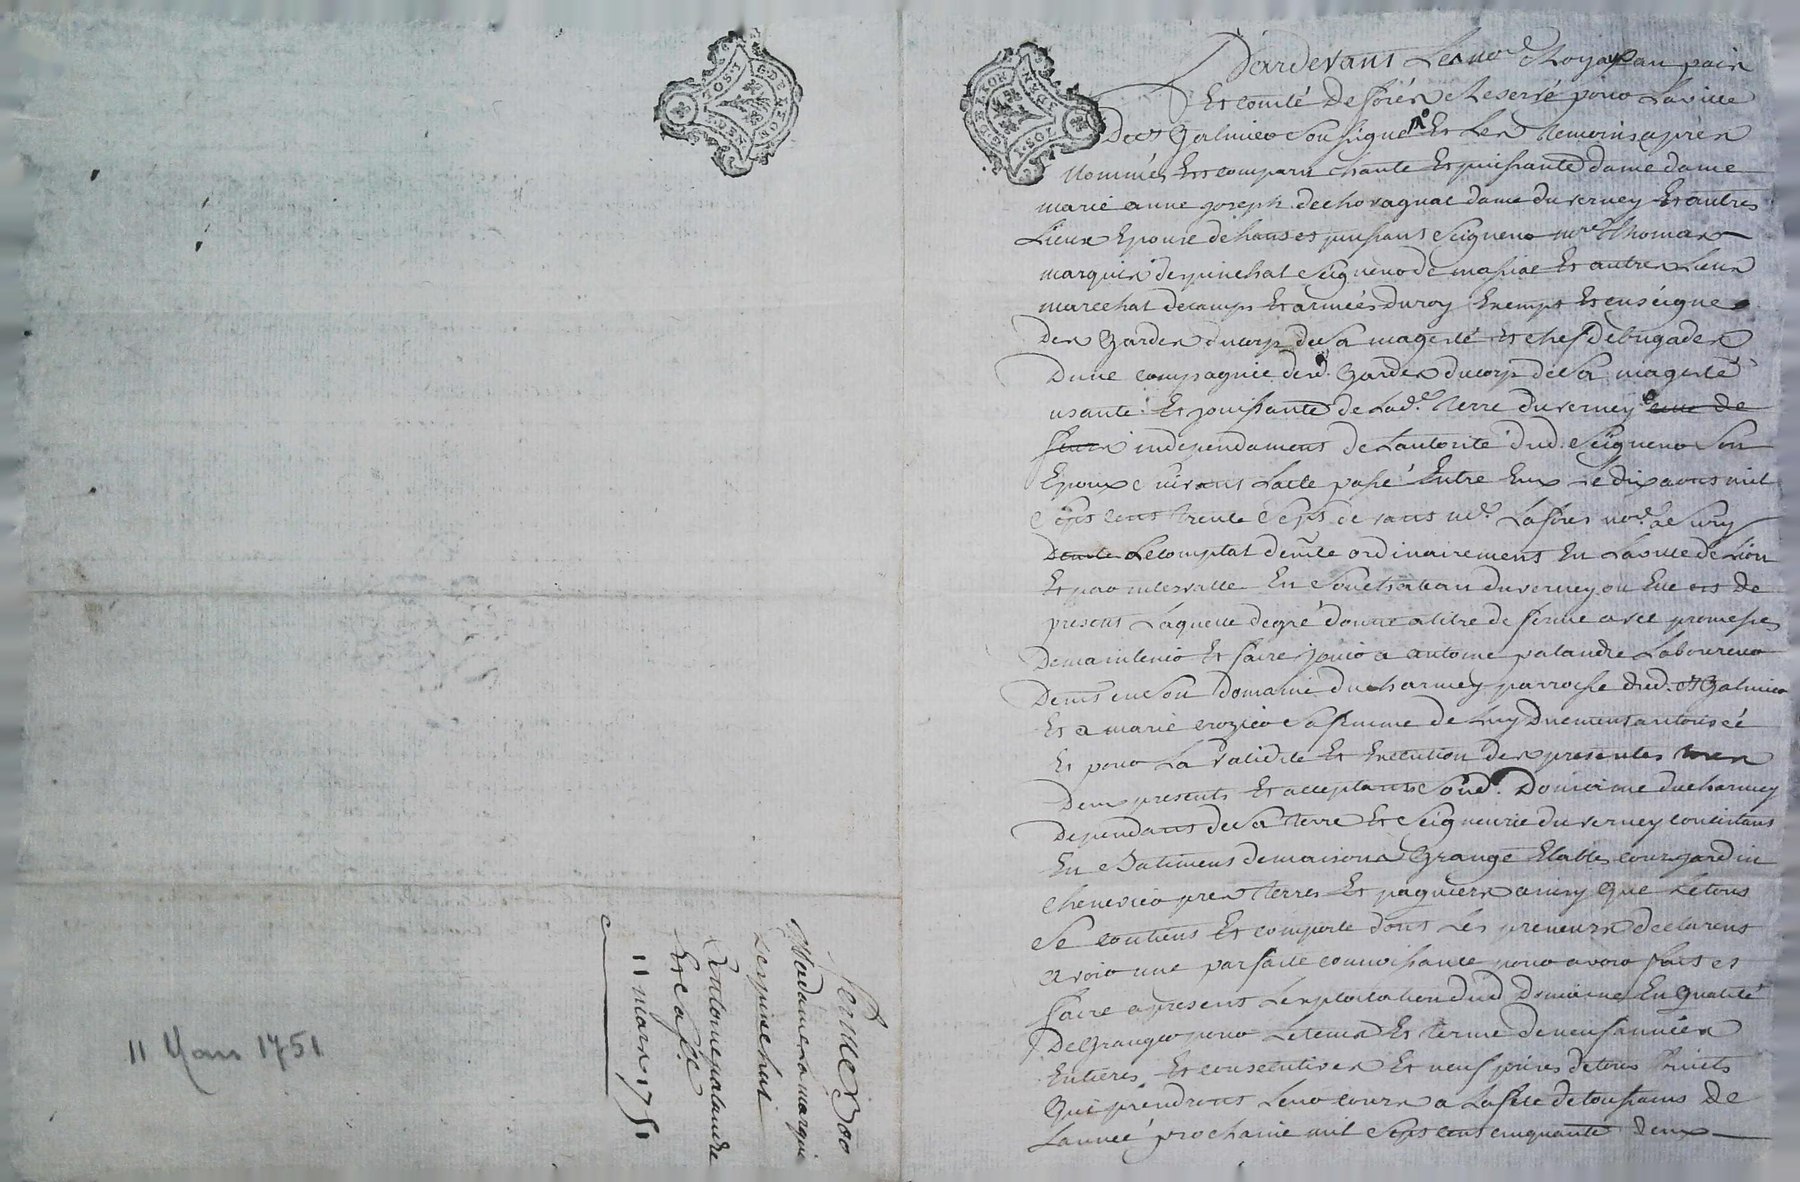 11 Mars 1751
ferme pour
Madame la marquise
despinchat
Antoine palandre
et sa fe
11 mars 1751
G·DE·LYON
I·SOL
2·DEN
Pardevant Le no.re Royal au païs
Et comté de foréz Reservé pour La ville
De St Galmier Soussigné Et Les Temoins apres
Nommés Est comparu haute Et puissante dame dame
marie anne joseph de chovagnat dame du verney Et autres
Lieux Epouse de haut et puissant Seigneur m.re Thomas
marquis despinchat Seigneur de massiac Et autres Lieux
marechal de camps Et armées du roy Exempt Et enseigne
Des Gardes du corp de Sa magesté Et chef de brigades
Dune compagnie desd. Gardes du corp de Sa magesté
usante Et jouissante de Lad.e Terre du verney
independament de Lautorité dud. Seigneur Son
Epoux Suivant Lacte passé Entre Eux Le dix aout mil
Sept cent trente Sept devant m.e Lafores no.re a Sury
Le comptal demte ordinairement En La ville de Lion
Et par intervalle En Son chateau du verney ou Elle est de
present Laquelle de gré donne a titre de ferme avec promesse
De maintenir Et faire jouir a antoine palandre Laboureur
Demt en Son Domaine du charmey parroisse dud. St Galmier
Et a marie crozier Sa femme de Luy Duement autorisée
Et pour La validité Et Execution des presentes
Deux presents Et acceptants Sond. Domaine du charmey
Dependant de Sa Terre Et Seigneurie du verney consistant
En Batiments de maisons Grange Etables cour jardin
chenevier pres Terres Et paquiers ainsy Que Le tout
Se contient Et comporte dont Les preneurs declarent
avoir une parfaite connoissance pour avoir fait et
faire apresent Lexploitation dud Domaine En qualité
De Granger pour Le tems Et terme de neuf années
Entieres Et consecutives Et neuf prises de tous fruits
Qui prendront Leur cours a La fete de toussaints de
Lannée prochaine mil Sept cent cinquante deux